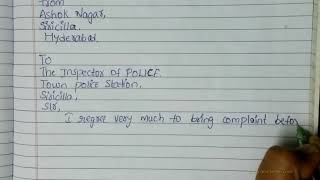 From
Ashok Nagar,
Siricilla.
Hyderabad.
To
The Inspector of POLICE.
Town police Station,
Siricilla,
Sir,
I regree very much to bring complaint befor